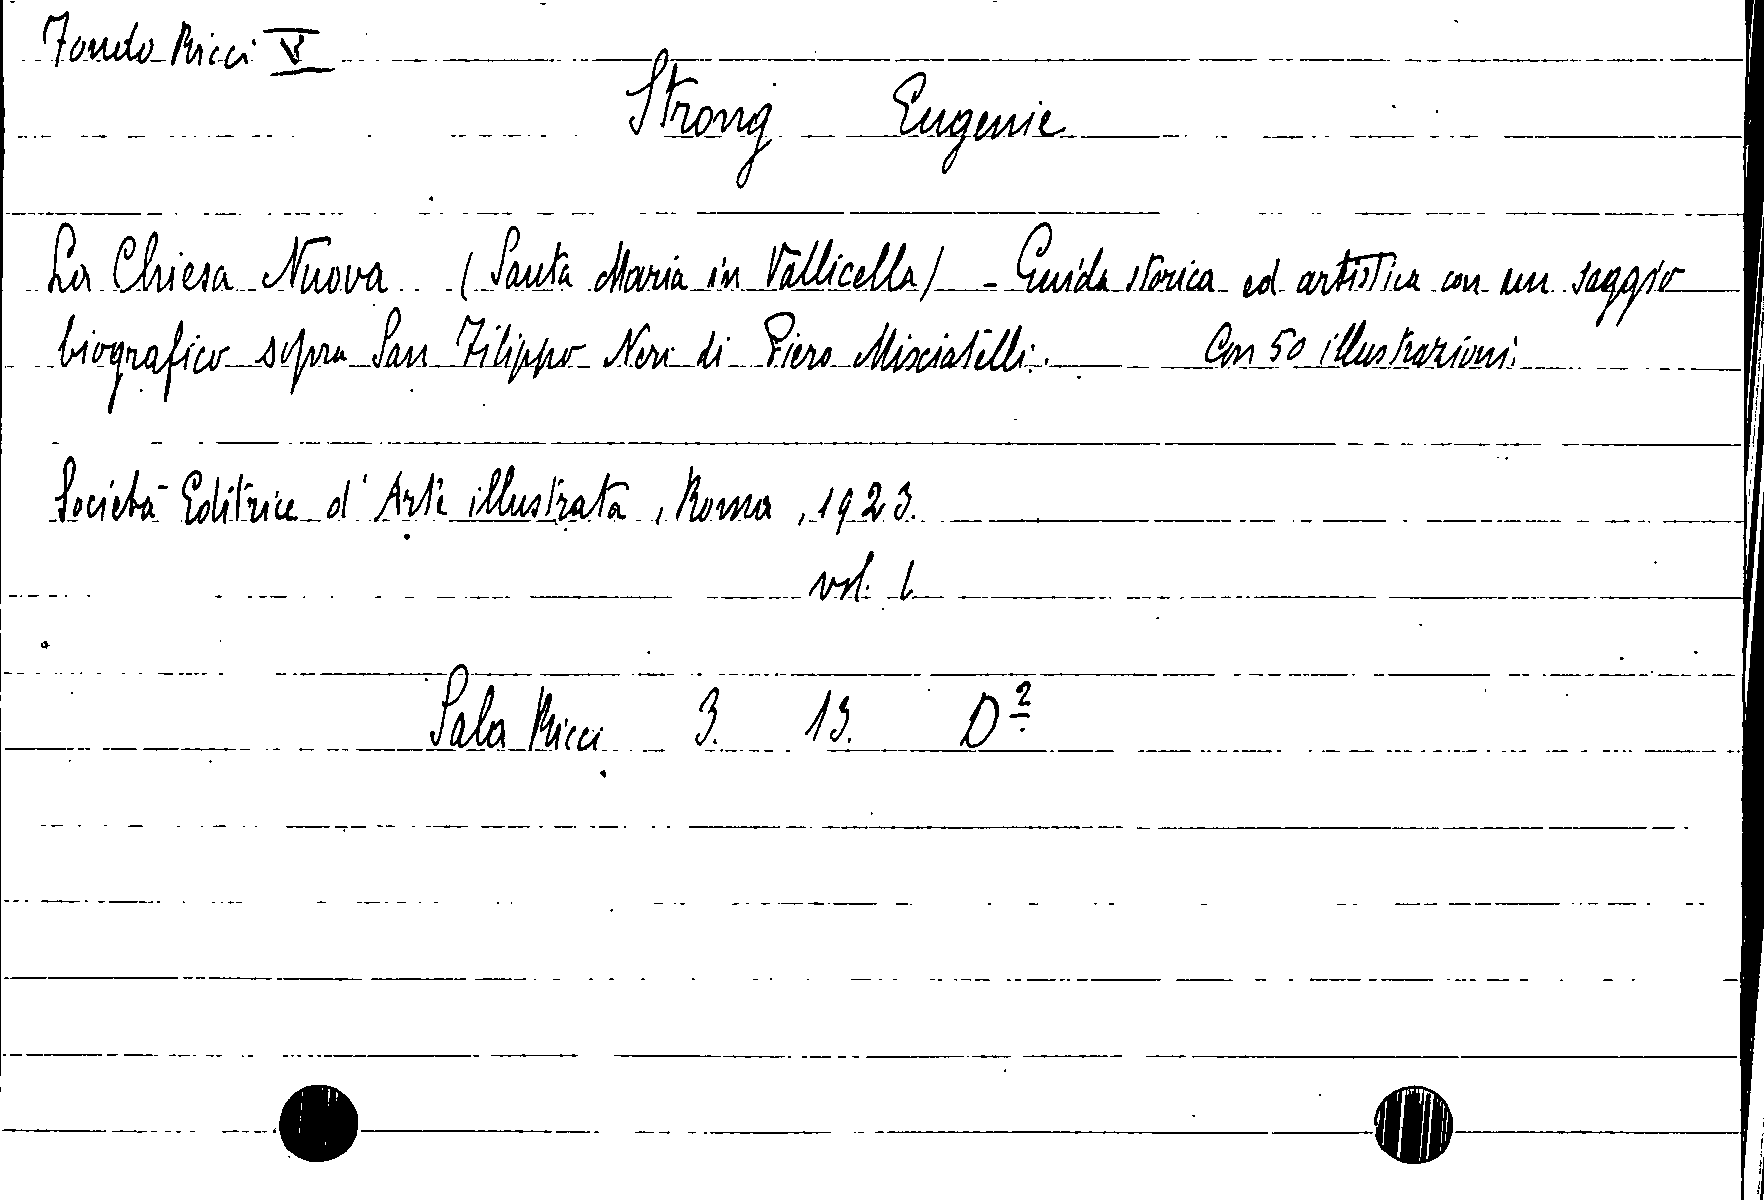 Fondo Ricci V
Strong Eugenie
La Chiesa Nuova (Santa Maria in Vallicella) - Guida storica ed artistica con un saggio
biografico sopra San Filippo Neri di Piero Misciatelli. Con 50 illustrazioni.
Società Editrice d'Arte illustrata, Roma, 1923.
vol. 1
Sala Ricci 3. 13. D²